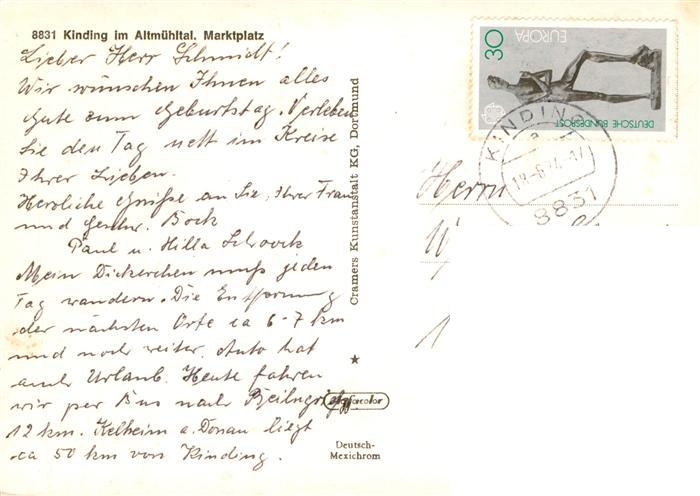 8831 Kinding im Altmühltal. Marktplatz
Lieber Herr Schmidt!
Wir wünschen Ihnen alles
Gute zum Geburtstag. Verleben
Sie den Tag nett im Kreise
Ihrer Lieben.
Herzliche Grüße an Sie, Ihrer Frau
und Geschw. Bock
Paul u. Hilla
Mein Dickerchen muß jeden
Tag wandern. Die Entfernung
der nächsten Orte ca 6-7 km
und noch weiter. Auto hat
auch Urlaub. Heute fahren
wir per Bus nach Beilngries
12 km. Kelheim a. Donau liegt
ca 50 km von Kinding.
Cramers Kunstanstalt KG, Dortmund
Deutsch-
Mexichrom
30
EUROPA
DEUTSCHE BUNDESPOST
KINDING
a
8831
Herrn